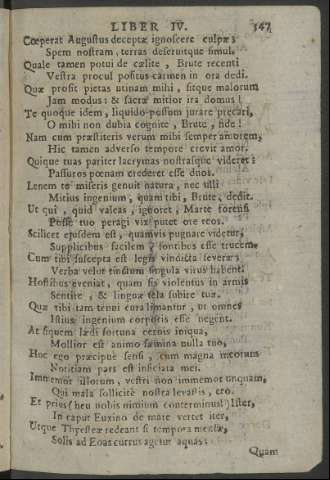 LIBER IV. 147
Cœperat Augustus deceptæ ignoscere culpæ;
Spem nostram, terras deseruitque simul.
Quale tamen potui de cœlite, Brute recenti
Vestra procul positus carmen in ora dedi.
Quæ prosit pietas utinam mihi, sitque malorum
Jam modus: & sacræ mitior ira domus!
Te quoque idem, liquido possum jurare precari,
O mihi non dubia cognite, Brute, nde!
Nam cum præstiteris verum mihi semper amorem,
Hic tamen adverso tempore crevit amor.
Quique tuas pariter lacrymas nostrasque videret;
Passuros pœnam crederet esse duos.
Lenem te miseris genuit natura, nec ulli
Mitius ingenium, quam tibi, Brute, dedit.
Ut qui, quid valeas, ignoret, Marte forensi
Posse tuo peragi vix putet ore reos.
Scilicet ejusdem est, quamvis pugnare videtur,
Supplicibus facilem, sontibus esse trucem.
Cum tibi suscepta est legis vindicta severæ;
Verba velut tinctum singula virus habent.
Hostibus eveniat, quam sis violentus in armis
Sentire, & linguæ tela subire tuæ.
Quæ tibi tam tenui cura limantur, ut omnes
Istius ingenium corporis esse negent.
At siquem lædi fortuna cernis iniqua,
Mollior est animo fœmina nulla tuo,
Hoc ego præcipue sensi, cum magna meorum
Notitiam pars est inficiata mei.
Immemor illorum, vestri non immemor unquam,
Qui mala solliciti nostra levastis, ero.
Et prius (heu nobis nimium conterminus!) Ister,
In caput Euxino de mare vertet iter,
Utque Thyesteæ redeant si tempora mensæ,
Solis ad Eoas currus agetur aquas:
Quam